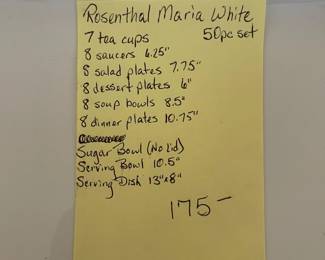 Rosenthal Maria White
7 tea cups 50pc set
8 saucers 6.25"
8 salad plates 7.75"
8 dessert plates 6"
8 soup bowls 8.5"
8 dinner plates 10.75"
Sugar Bowl (No Lid)
Serving Bowl 10.5"
Serving Dish 13"x8"
175-